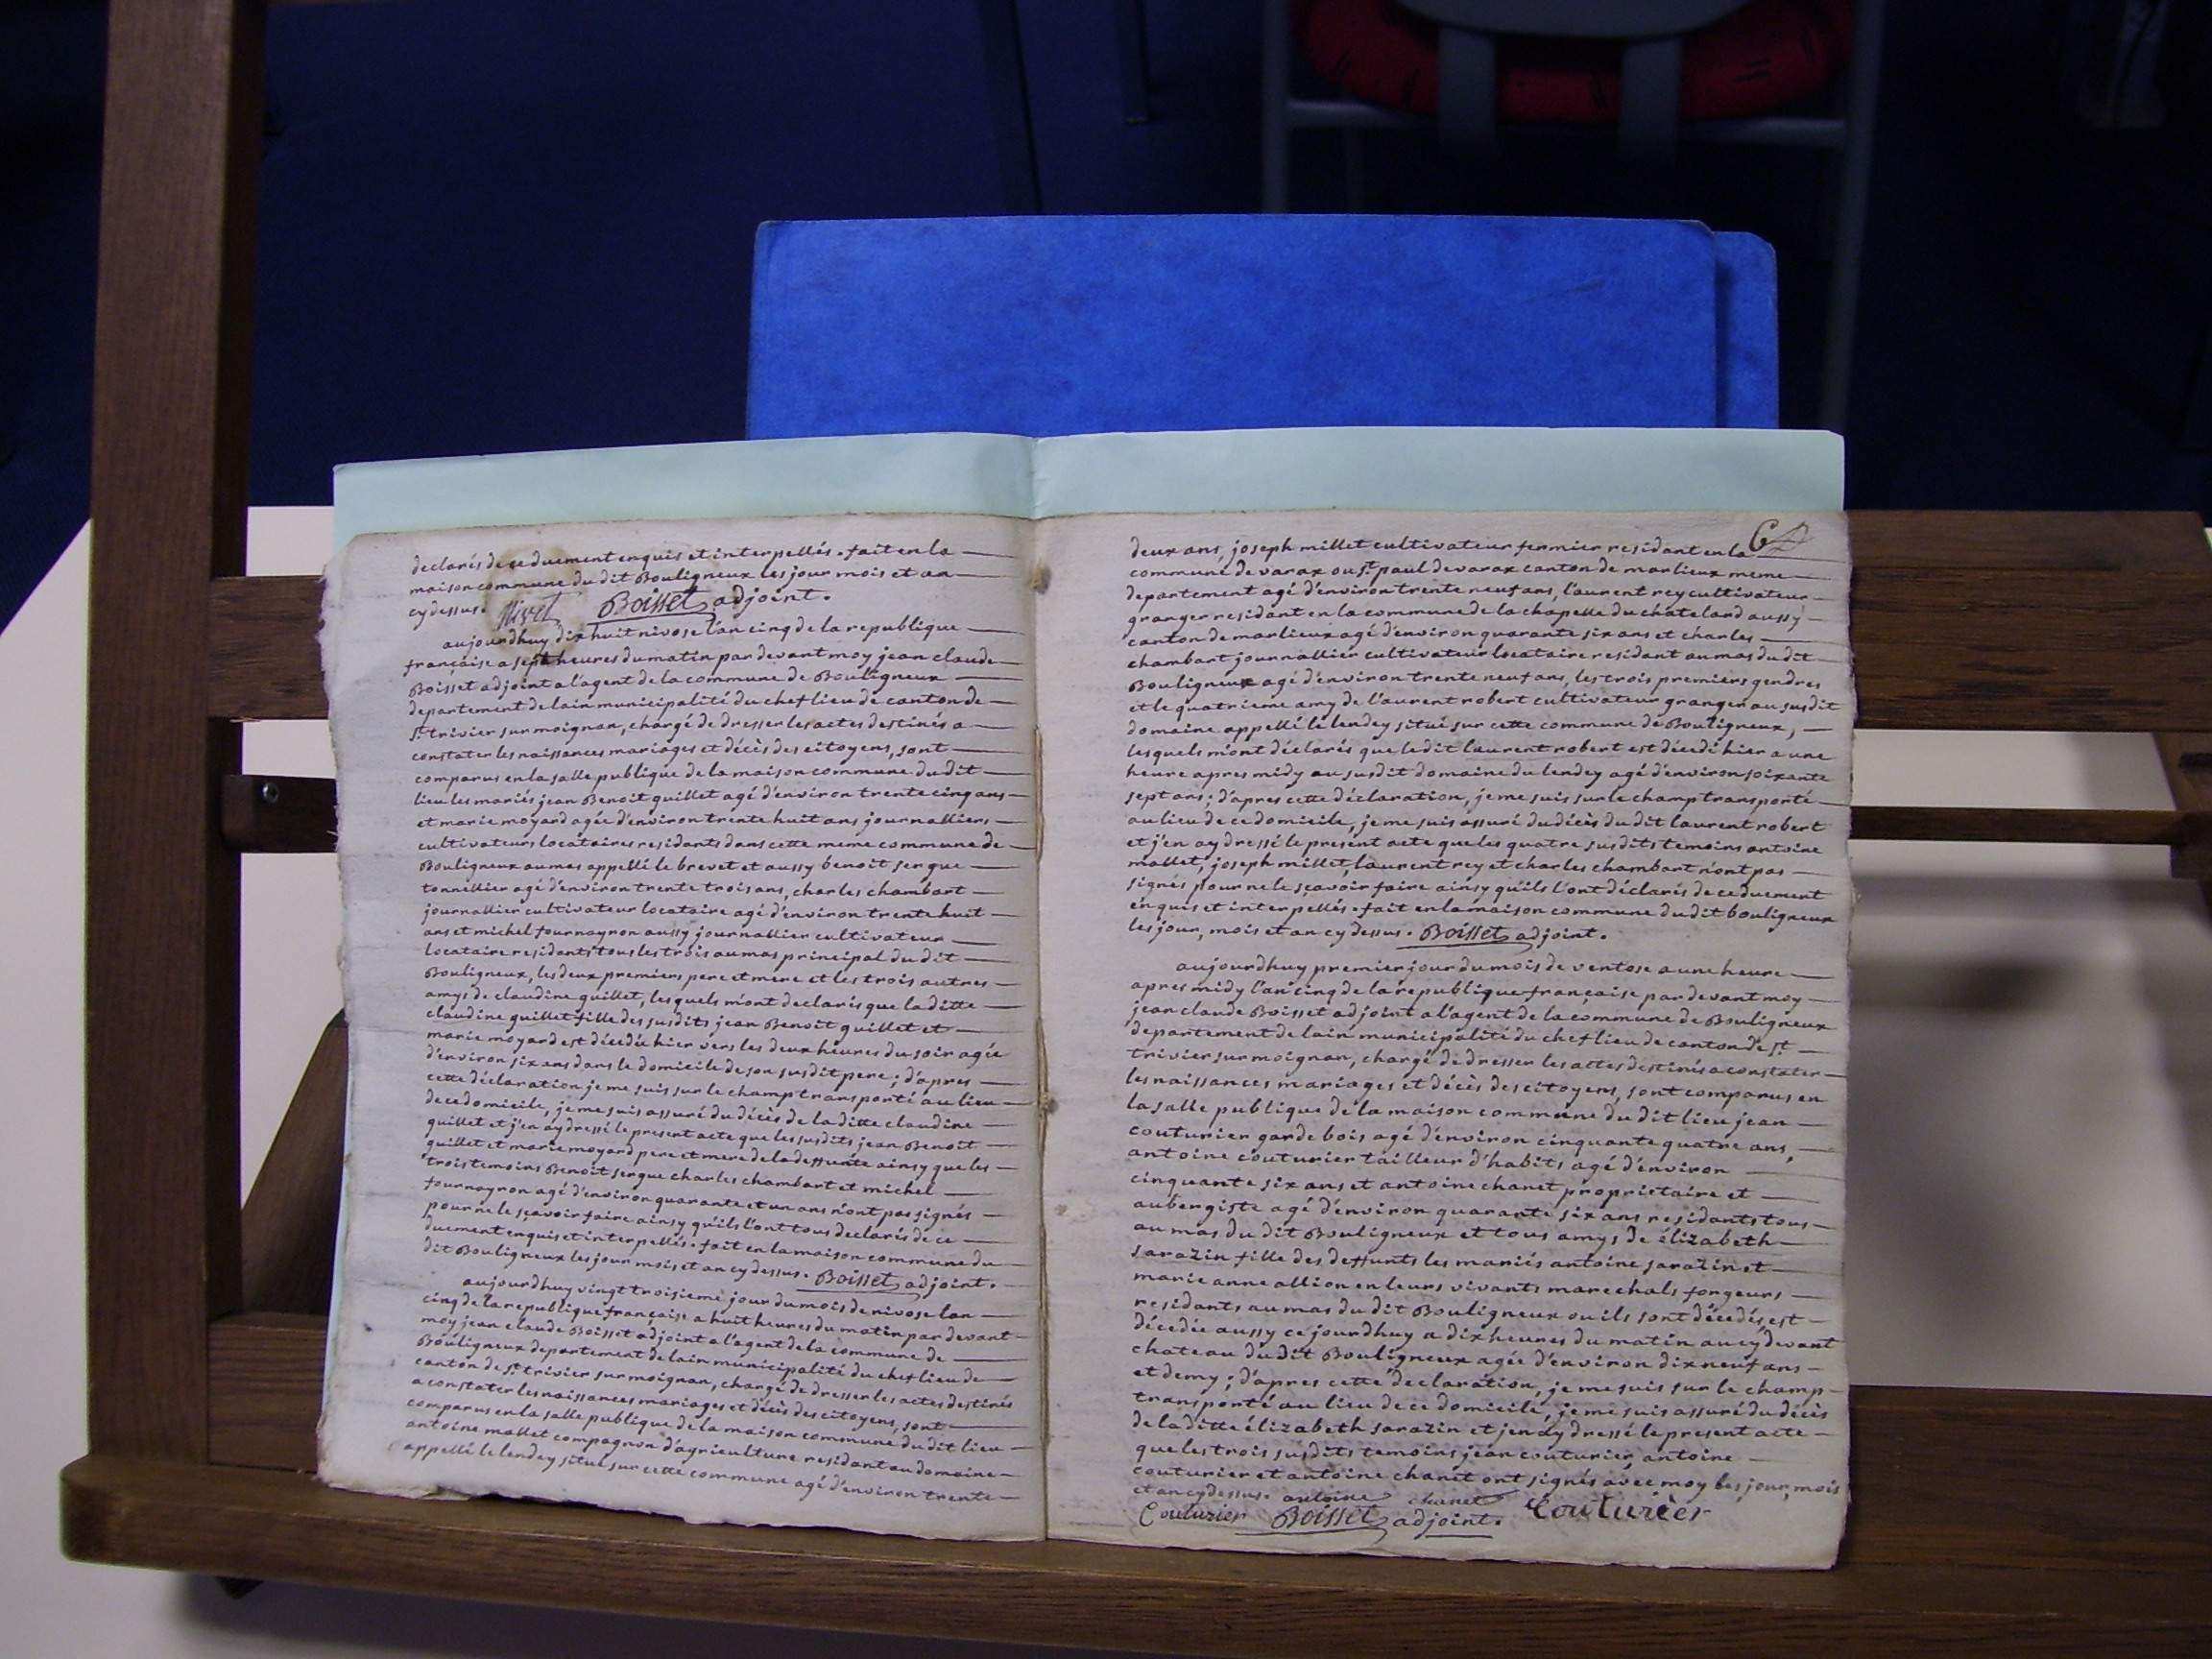 declarés de ce duement enquis et interpellés. fait en la
maison commune du dit Bouligneux les jour mois et an
cy dessus. Nivet Boisset adjoint.
aujourdhuy dix huit nivose l'an cinq de la republique
française a sept heures du matin par devant moy jean claude
Boisset adjoint a l'agent de la commune de Bouligneux
departement de lain municipalité du chef lieu de canton de
St. trivier sur moignan, chargé de dresser les actes destinés a
constater les naissances mariages et décès des citoyens, sont
comparus en la salle publique de la maison commune du dit
lieu les mariés jean Benoit guillet agé d'environ trente cinq ans
et marie moyard agée d'environ trente huit ans journalliers
cultivateurs locataires residants dans cette meme commune de
Bouligneux au mas appellé le brevet et aussy benoit sergue
tonnellier agé d'environ trente trois ans, charles chambart
journallier cultivateur locataire agé d'environ trente huit
ans et michel fournayron aussy journallier cultivateur
locataire residants tous les trois au mas principal du dit
Bouligneux, les deux premiers pere et mere et les trois autres
amys de claudine guillet, lesquels m'ont declarés que la ditte
claudine guillet fille des susdits jean Benoit guillet et
marie moyard est décedée hier vers les deux heures du soir agée
d'environ six ans dans le domicile de son susdit pere; d'apres
cette déclaration je me suis sur le champ transporté au lieu
de ce domicile, je me suis assuré du décès de la ditte claudine
guillet et j'en ay dressé le present acte que les susdits jean Benoit
guillet et marie moyard pere et mere de la deffunte ainsy que les
trois temoins Benoit sergue charles chambart et michel
fournayron agé d'environ quarante et un ans n'ont pas signés
pour ne le sçavoir faire ainsy qu'ils l'ont tous declarés de ce
duement enquis et interpellés. fait en la maison commune du
dit Bouligneux les jour mois et an cy dessus. Boisset adjoint.
aujourdhuy vingt troisieme jour du mois de nivose lan
cinq de la republique française a huit heures du matin par devant
moy jean claude Boisset adjoint a l'agent de la commune de
Bouligneux departement de lain municipalité du chef lieu de
canton de St. trivier sur moignan, chargé de dresser les actes destinés
a constater les naissances mariages et décès des citoyens, sont
comparus en la salle publique de la maison commune du dit lieu
antoine mallet compagnon d'agriculture residant au domaine
appellé le lendey situé sur cette commune agé d'environ trente
6
deux ans, joseph millet cultivateur fermier residant en la
commune de varax ou St. paul de varax canton de marlieux meme
departement agé d'environ trente neuf ans, l'aurent rey cultivateur
granger residant en la commune de la chapelle du chatelard aussy
canton de marlieux agé d'environ quarante six ans et charles
chambart journallier cultivateur locataire residant au mas du dit
Bouligneux agé d'environ trente neuf ans, les trois premiers gendres
et le quatrieme amy de l'aurent robert cultivateur granger au susdit
domaine appellé le lendey situé sur cette commune de Bouligneux,
lesquels m'ont déclarés que le dit laurent robert est décedé hier a une
heure apres midy au susdit domaine du lendey agé d'environ soixante
sept ans; d'apres cette déclaration, je me suis sur le champ transporté
au lieu de ce domicile, je me suis assuré du décès du dit laurent robert
et j'en ay dressé le present acte que les quatre susdits temoins antoine
mallet, joseph millet, laurent rey et charles chambart n'ont pas
signés pour ne le sçavoir faire ainsy qu'ils l'ont déclarés de ce duement
enquis et interpellés. fait en la maison commune du dit bouligneux
les jour, mois et an cy dessus. Boisset adjoint.
aujourdhuy premier jour du mois de ventose a une heure
apres midy l'an cinq de la republique française par devant moy
jean claude Boisset adjoint a l'agent de la commune de Bouligneux
departement de lain municipalité du chef lieu de canton de St.
trivier sur moignan, chargé de dresser les actes destinés a constater
les naissances mariages et décès des citoyens, sont comparus en
la salle publique de la maison commune du dit lieu jean
couturier garde bois agé d'environ cinquante quatre ans,
antoine couturier tailleur d'habits agé d'environ
cinquante six ans et antoine chanet proprietaire et
aubergiste agé d'environ quarante six ans residants tous
au mas du dit Bouligneux et tous amys de élizabeth
sarazin fille des deffunts les mariés antoine sarazin et
marie anne allion en leurs vivants marechals forgeurs
residants au mas du dit Bouligneux ou ils sont décedés, est
décedée aussy ce jourdhuy a dix heures du matin au cy devant
chateau du dit Bouligneux agée d'environ dix neuf ans
et demy; d'apres cette declaration, je me suis sur le champ
transporté au lieu de ce domicile, je me suis assuré du décès
de la ditte élizabeth sarazin et j'en ay dressé le present acte
que les trois susdits temoins jean couturier, antoine
couturier et antoine chanet ont signés avec moy les jour, mois
et an cy dessus. antoine chanet Couturier
Couturier Boisset adjoint.